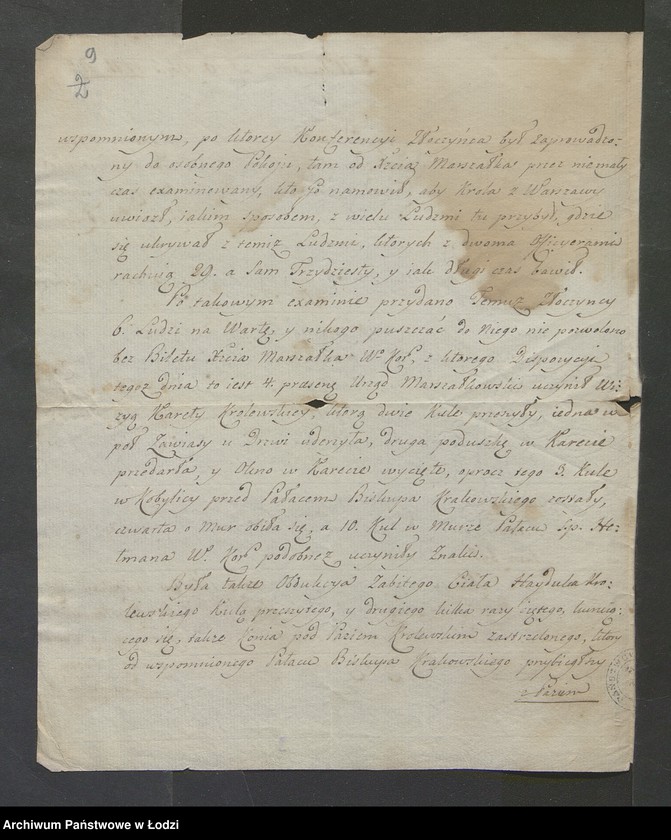 9
2
wspomnionym, po ktorey Konferencyi Złoczyńca był zaprowadzo-
ny do osobnego Pokoju, tam od Xcia Marszałka przez niemały
czas examinowany, kto go namowił, aby Krola z Warszawy
uwiozł, iakim sposobem, z wielu Ludzmi tu przybył, gdzie
się ukrywał z temiż Ludzmi, ktorych z dwoma Officyerami
rachuią 29. a Sam Trzydziesty, y iak długi czas bawił.
Po takowym examinie przydano Temuz Złoczyncy
6. Ludzi na Wartę, y nikogo puszczać do niego nie pozwolono
bez Biletu Xcia Marszałka W. Kor. z ktorego Dispozycyi
tegoz dnia to iest 4. præsens Urząd Marszałkowski uczynił Wi-
zyą Karety Krolewskiey ktorą dwie Kule przeszyły, iedna w
poł Zawiasy u Drzwi uderzyła, druga poduszkę w Karecie
przedarła, y Okno w Karecie wycięte, oprocz tego 3. Kule
w Kobylicy przed Pałacem Biskupa Krakowskiego zostały,
czwarta o mur obiła się, a 10. Kul w Murze Pałacu Sp. Het-
mana W. Kor. podobnez uczyniły Znaki.
Była takze Obdukcya Zabitego Ciała Hayduka Kro-
lewskiego Kulą przeszytego, y drugiego kilka razy ciętego,
cego się, takze Konia pod Paziem Krolewskim zastrzelonego, ktory
od wspomnionego Pałacu Biskupa Krakowskiego przybiegłszy
z Paziem
Archiwum Państwowe w Łodzi